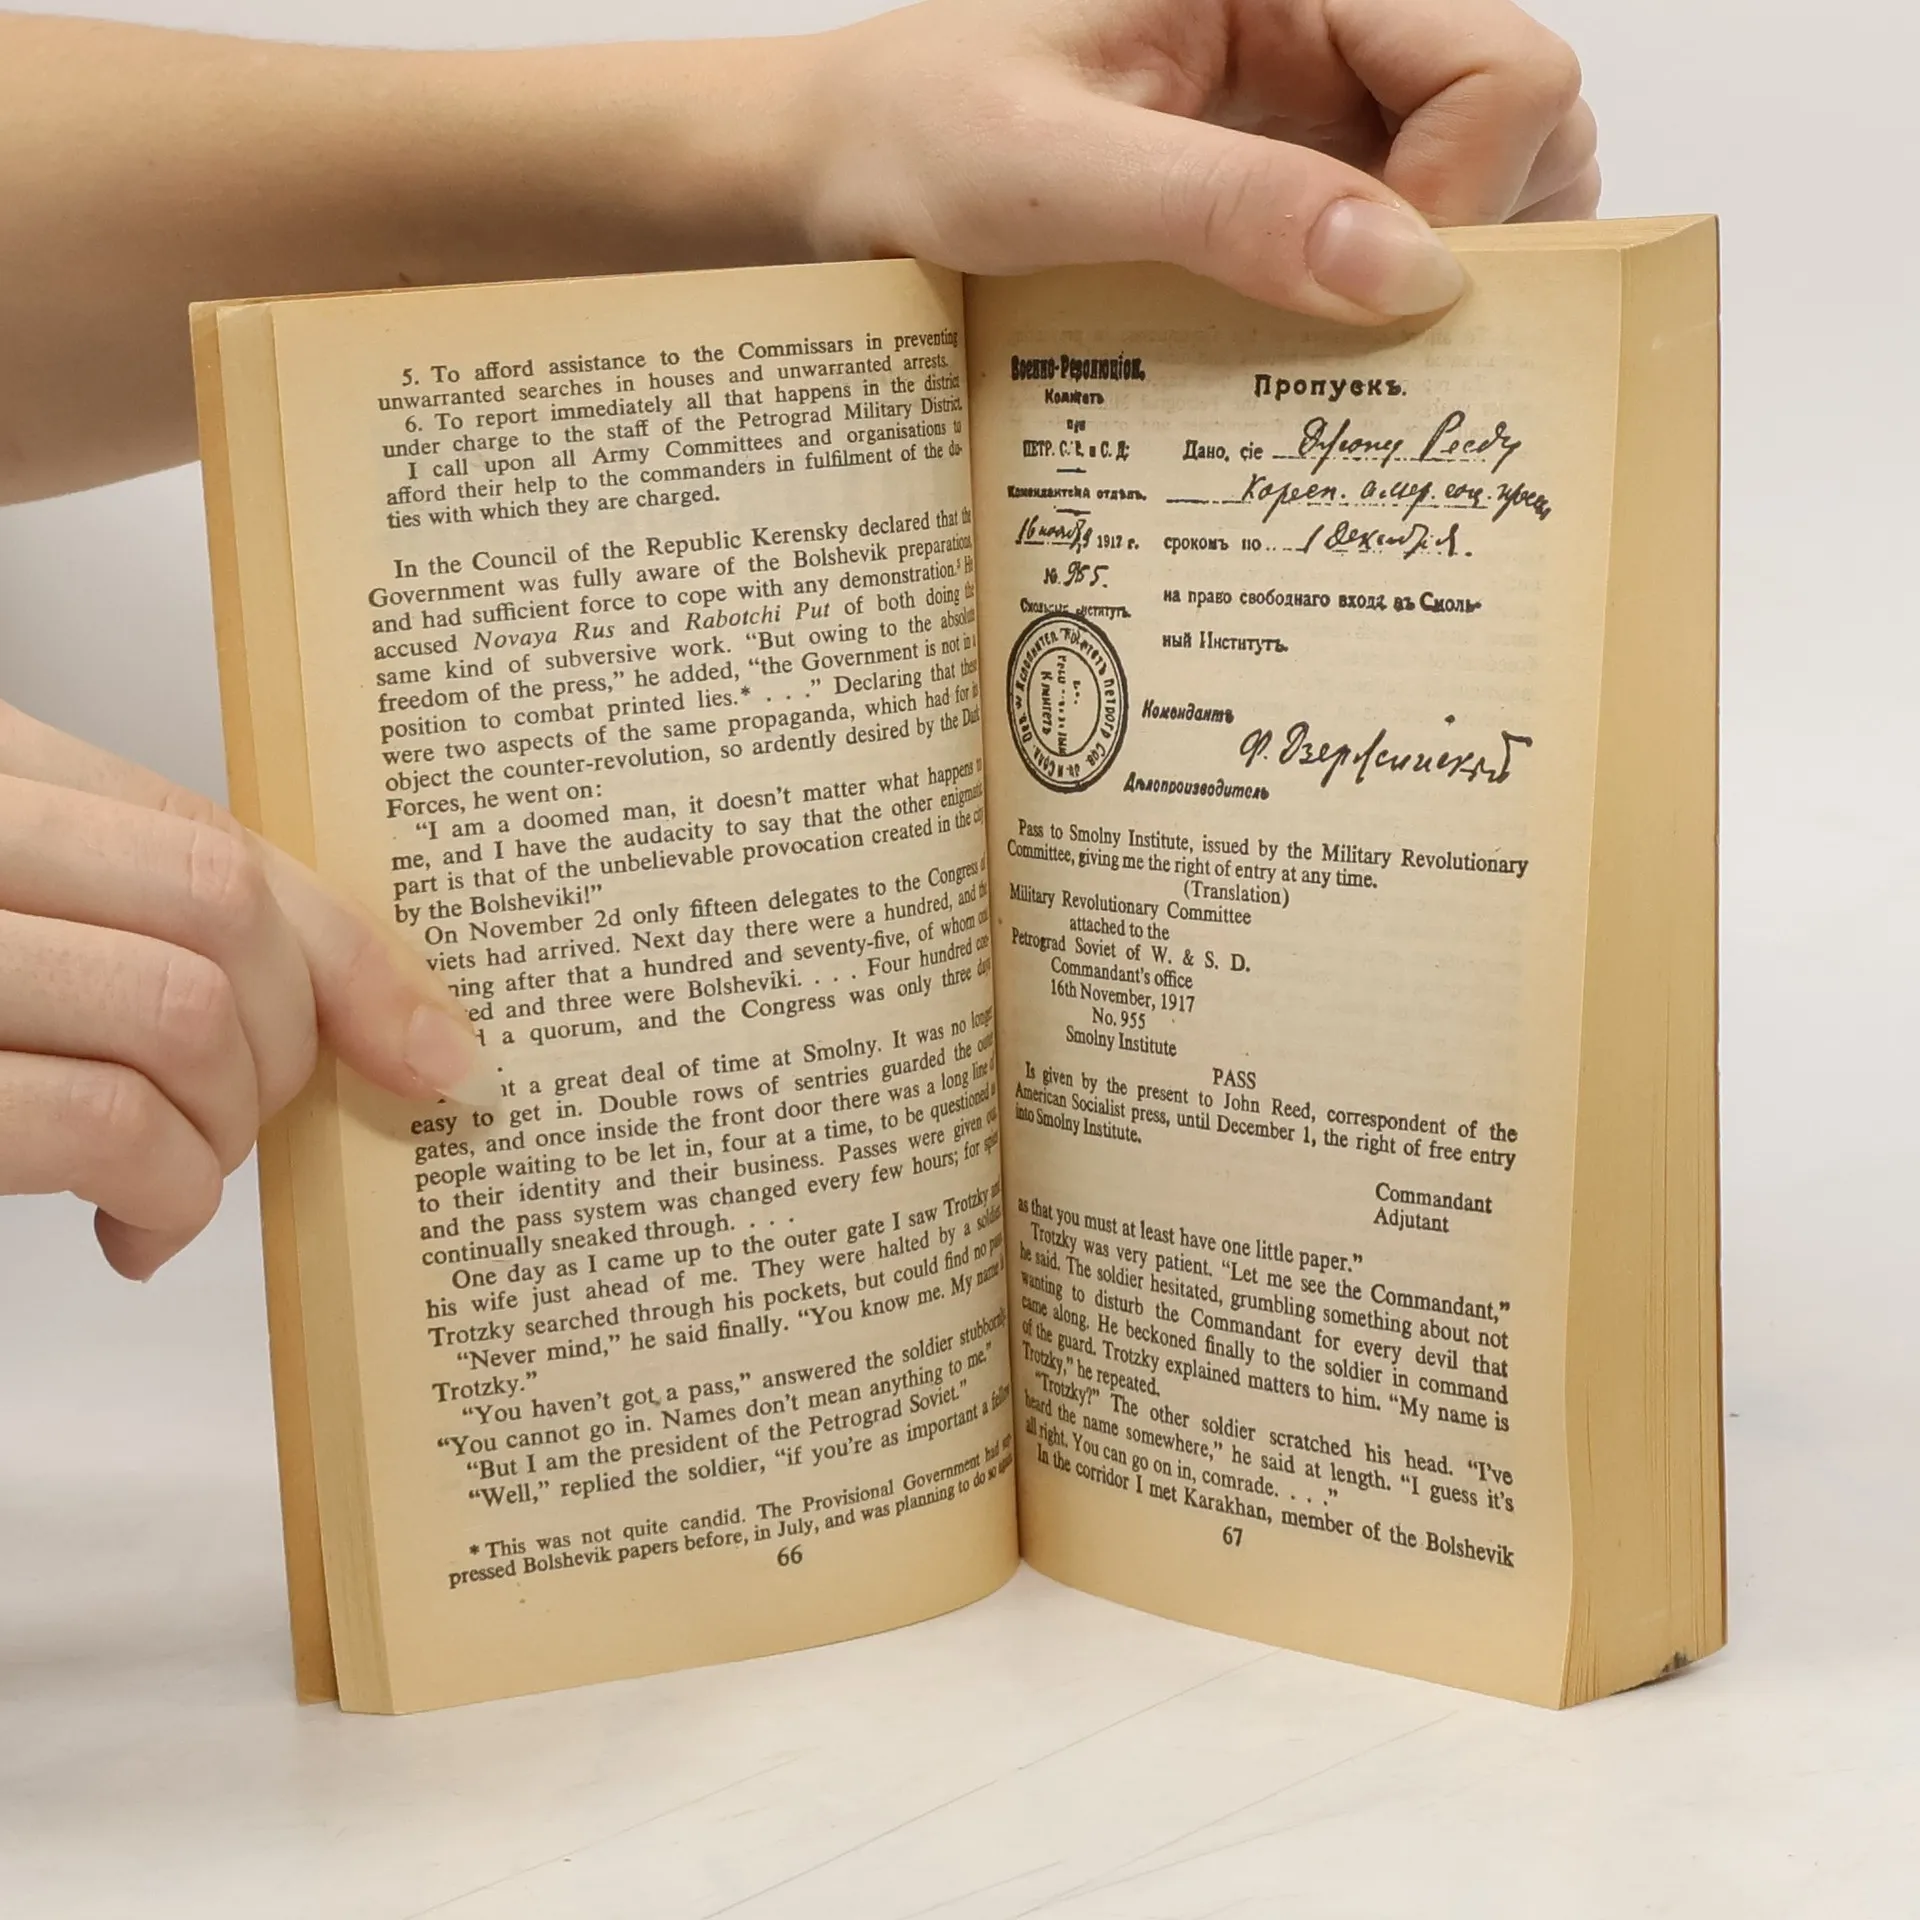 5. To afford assistance to the Commissars in preventing
unwarranted searches in houses and unwarranted arrests.
6. To report immediately all that happens in the district
under charge to the staff of the Petrograd Military District.
I call upon all Army Committees and organisations to
afford their help to the commanders in fulfilment of the du-
ties with which they are charged.
In the Council of the Republic Kerensky declared that the
Government was fully aware of the Bolshevik preparations,
and had sufficient force to cope with any demonstration.⁵ He
accused Novaya Rus and Rabotchi Put of both doing the
same kind of subversive work. “But owing to the absolute
freedom of the press,” he added, “the Government is not in a
position to combat printed lies.* . . .” Declaring that these
were two aspects of the same propaganda, which had for its
object the counter-revolution, so ardently desired by the Dark
Forces, he went on:
“I am a doomed man, it doesn’t matter what happens to
me, and I have the audacity to say that the other enigmatic
part is that of the unbelievable provocation created in the city
by the Bolsheviki!”
On November 2d only fifteen delegates to the Congress of
viets had arrived. Next day there were a hundred, and the
ning after that a hundred and seventy-five, of whom one
ed and three were Bolsheviki. . . . Four hundred con-
a quorum, and the Congress was only three days
a great deal of time at Smolny. It was no longer
easy to get in. Double rows of sentries guarded the outer
gates, and once inside the front door there was a long line of
people waiting to be let in, four at a time, to be questioned as
to their identity and their business. Passes were given out,
and the pass system was changed every few hours; for spies
continually sneaked through. . . .
One day as I came up to the outer gate I saw Trotzky and
his wife just ahead of me. They were halted by a soldier.
Trotzky searched through his pockets, but could find no pass.
“Never mind,” he said finally. “You know me. My name is
Trotzky.”
“You haven’t got a pass,” answered the soldier stubbornly.
“You cannot go in. Names don’t mean anything to me.”
“But I am the president of the Petrograd Soviet.”
“Well,” replied the soldier, “if you’re as important a fellow
* This was not quite candid. The Provisional Government had sup-
pressed Bolshevik papers before, in July, and was planning to do so again.
66
Военно-Революціон.
Комитетъ
при
ПЕТР. С. Р. и С. Д.
Комендантскій отдѣлъ.
16 ноября 1917 г.
№ 955.
Смольный институтъ.
Пропускъ.
Дано, сіе Джону Рееду
Коресп. амер. соц. прессы
срокомъ по 1 Декабря.
на право свободнаго входа въ Смоль-
ный Институтъ.
Комендантъ
Ф. Дзержинский
Дѣлопроизводитель
Pass to Smolny Institute, issued by the Military Revolutionary
Committee, giving me the right of entry at any time.
(Translation)
Military Revolutionary Committee
attached to the
Petrograd Soviet of W. & S. D.
Commandant’s office
16th November, 1917
No. 955
Smolny Institute
PASS
Is given by the present to John Reed, correspondent of the
American Socialist press, until December 1, the right of free entry
into Smolny Institute.
Commandant
Adjutant
as that you must at least have one little paper.”
Trotzky was very patient. “Let me see the Commandant,”
he said. The soldier hesitated, grumbling something about not
wanting to disturb the Commandant for every devil that
came along. He beckoned finally to the soldier in command
of the guard. Trotzky explained matters to him. “My name is
Trotzky,” he repeated.
“Trotzky?” The other soldier scratched his head. “I’ve
heard the name somewhere,” he said at length. “I guess it’s
all right. You can go on in, comrade. . . .”
In the corridor I met Karakhan, member of the Bolshevik
67